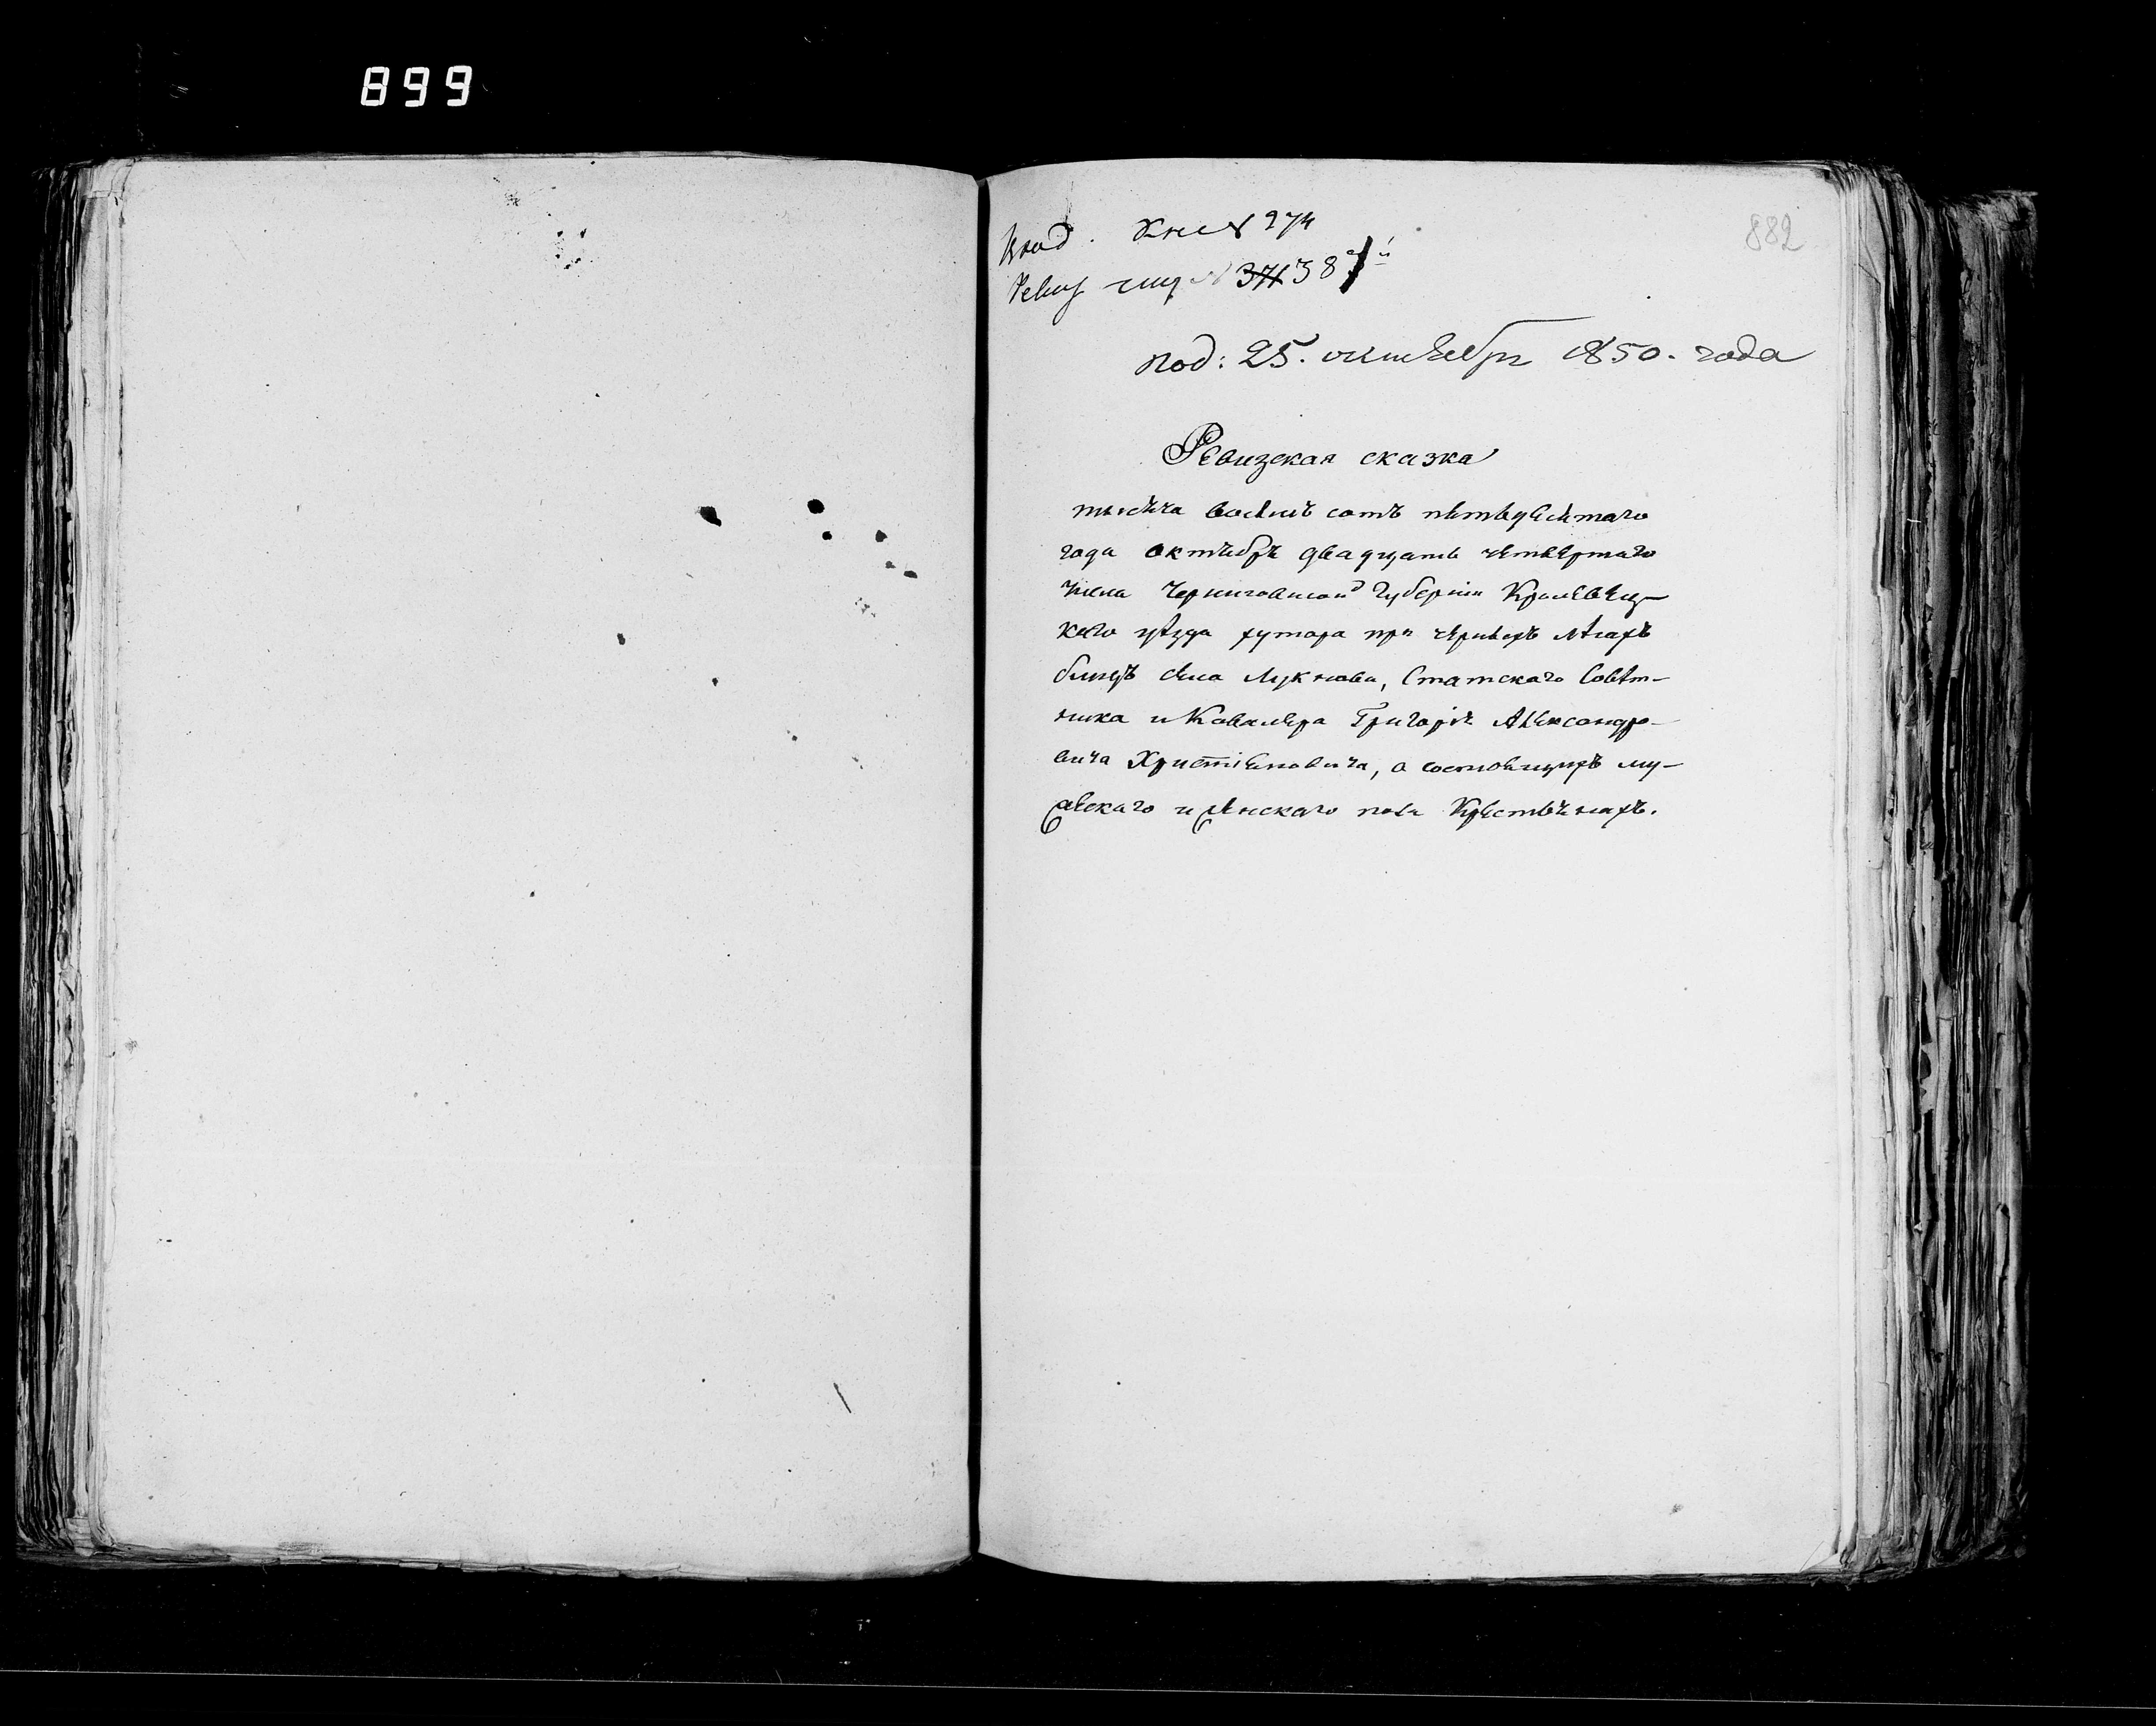 899
882
Вход. Кни № 274
Ревиз № 387й
под: 25. октября 1850. года
Ревизская сказка
тысяча восемь сотъ пятьдесятаго
года октября двадцать четвертаго
числа Черниговской Губерніи Кролевец-
каго уѣзда хутора при
близъ села Лукнова, Статского Совѣт-
ника и Кавалера Григорія Александро-
вича Христіановича, о состоящихъ му-
жескаго и женскаго пола Крестьянахъ.